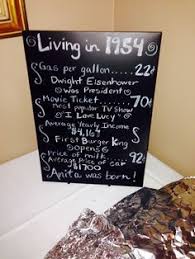 Living in 1954
Gas per gallon.....22¢
Dwight Eisenhower
Was President
Movie Ticket....70¢
most popular TV Show
"I Love Lucy"
Average Yearly Income
$4,167
First Burger King
opens
Price of milk....92¢
Average Price of car
$1700
Anita was born!